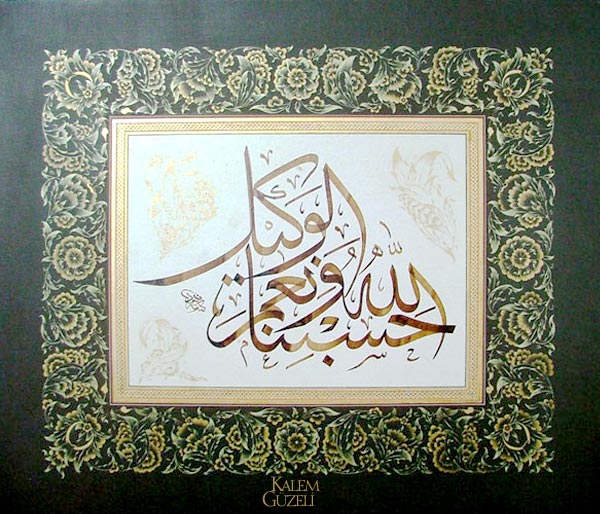 حَسْبُنَا اللّٰهُ وَنِعْمَ الْوَكِيلُ
KALEM
GÜZELİ